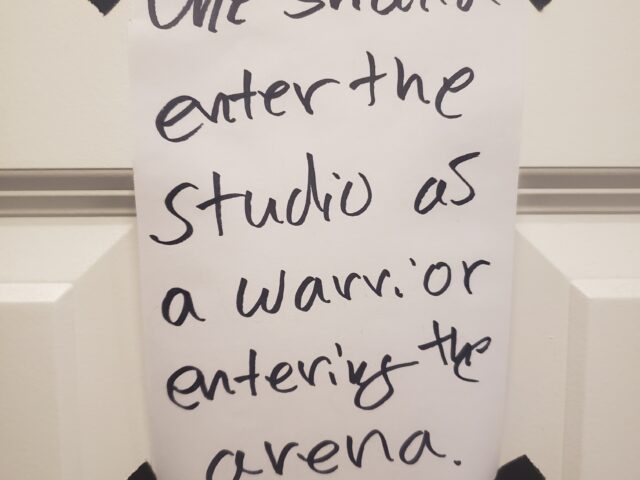 One should
enter the
studio as
a warrior
entering the
arena.